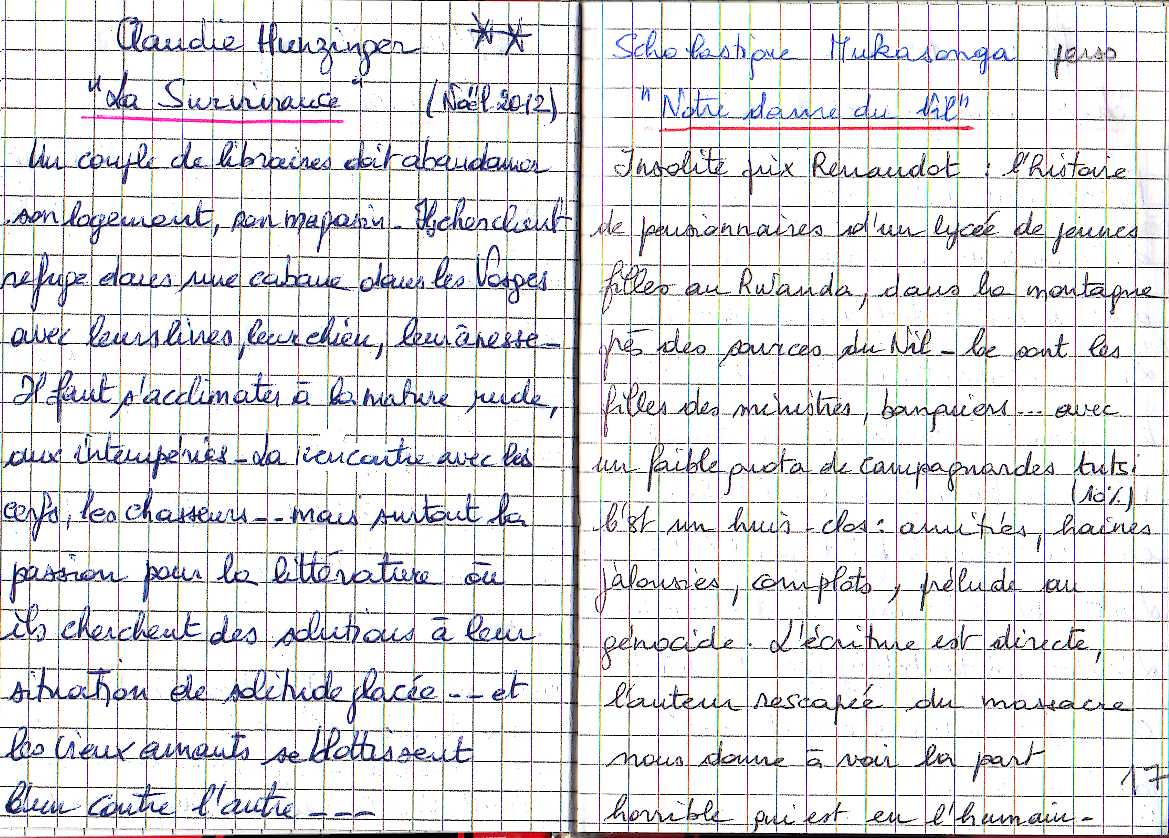 Claudie Hunzinger **
"La Survivance" (Noël 2012)
Un couple de libraires doit abandonner
son logement, son magasin - Ils cherchent
refuge dans une cabane dans les Vosges
avec leurs livres, leur chien, leur ânesse -
Il faut s'acclimater à la nature rude,
aux intempéries - La rencontre avec les
cerfs, les chasseurs -- mais surtout la
passion pour la littérature où
ils cherchent des solutions à leur
situation de solitude glacée -- et
les vieux amants se blottissent
l'un contre l'autre ---
Scholastique Mukasonga perso
"Notre dame du Nil"
Insolite prix Renaudot : l'histoire
de pensionnaires d'un lycée de jeunes
filles au Rwanda, dans la montagne
près des sources du Nil - Ce sont les
filles des ministres, banquiers... avec
un faible quota de campagnardes tutsi
(10%)
C'est un huis-clos : amitiés, haines
jalousies, complots, prélude au
génocide. L'écriture est directe,
l'auteur rescapée du massacre
nous donne à voir la part
horrible qui est en l'humain -
17